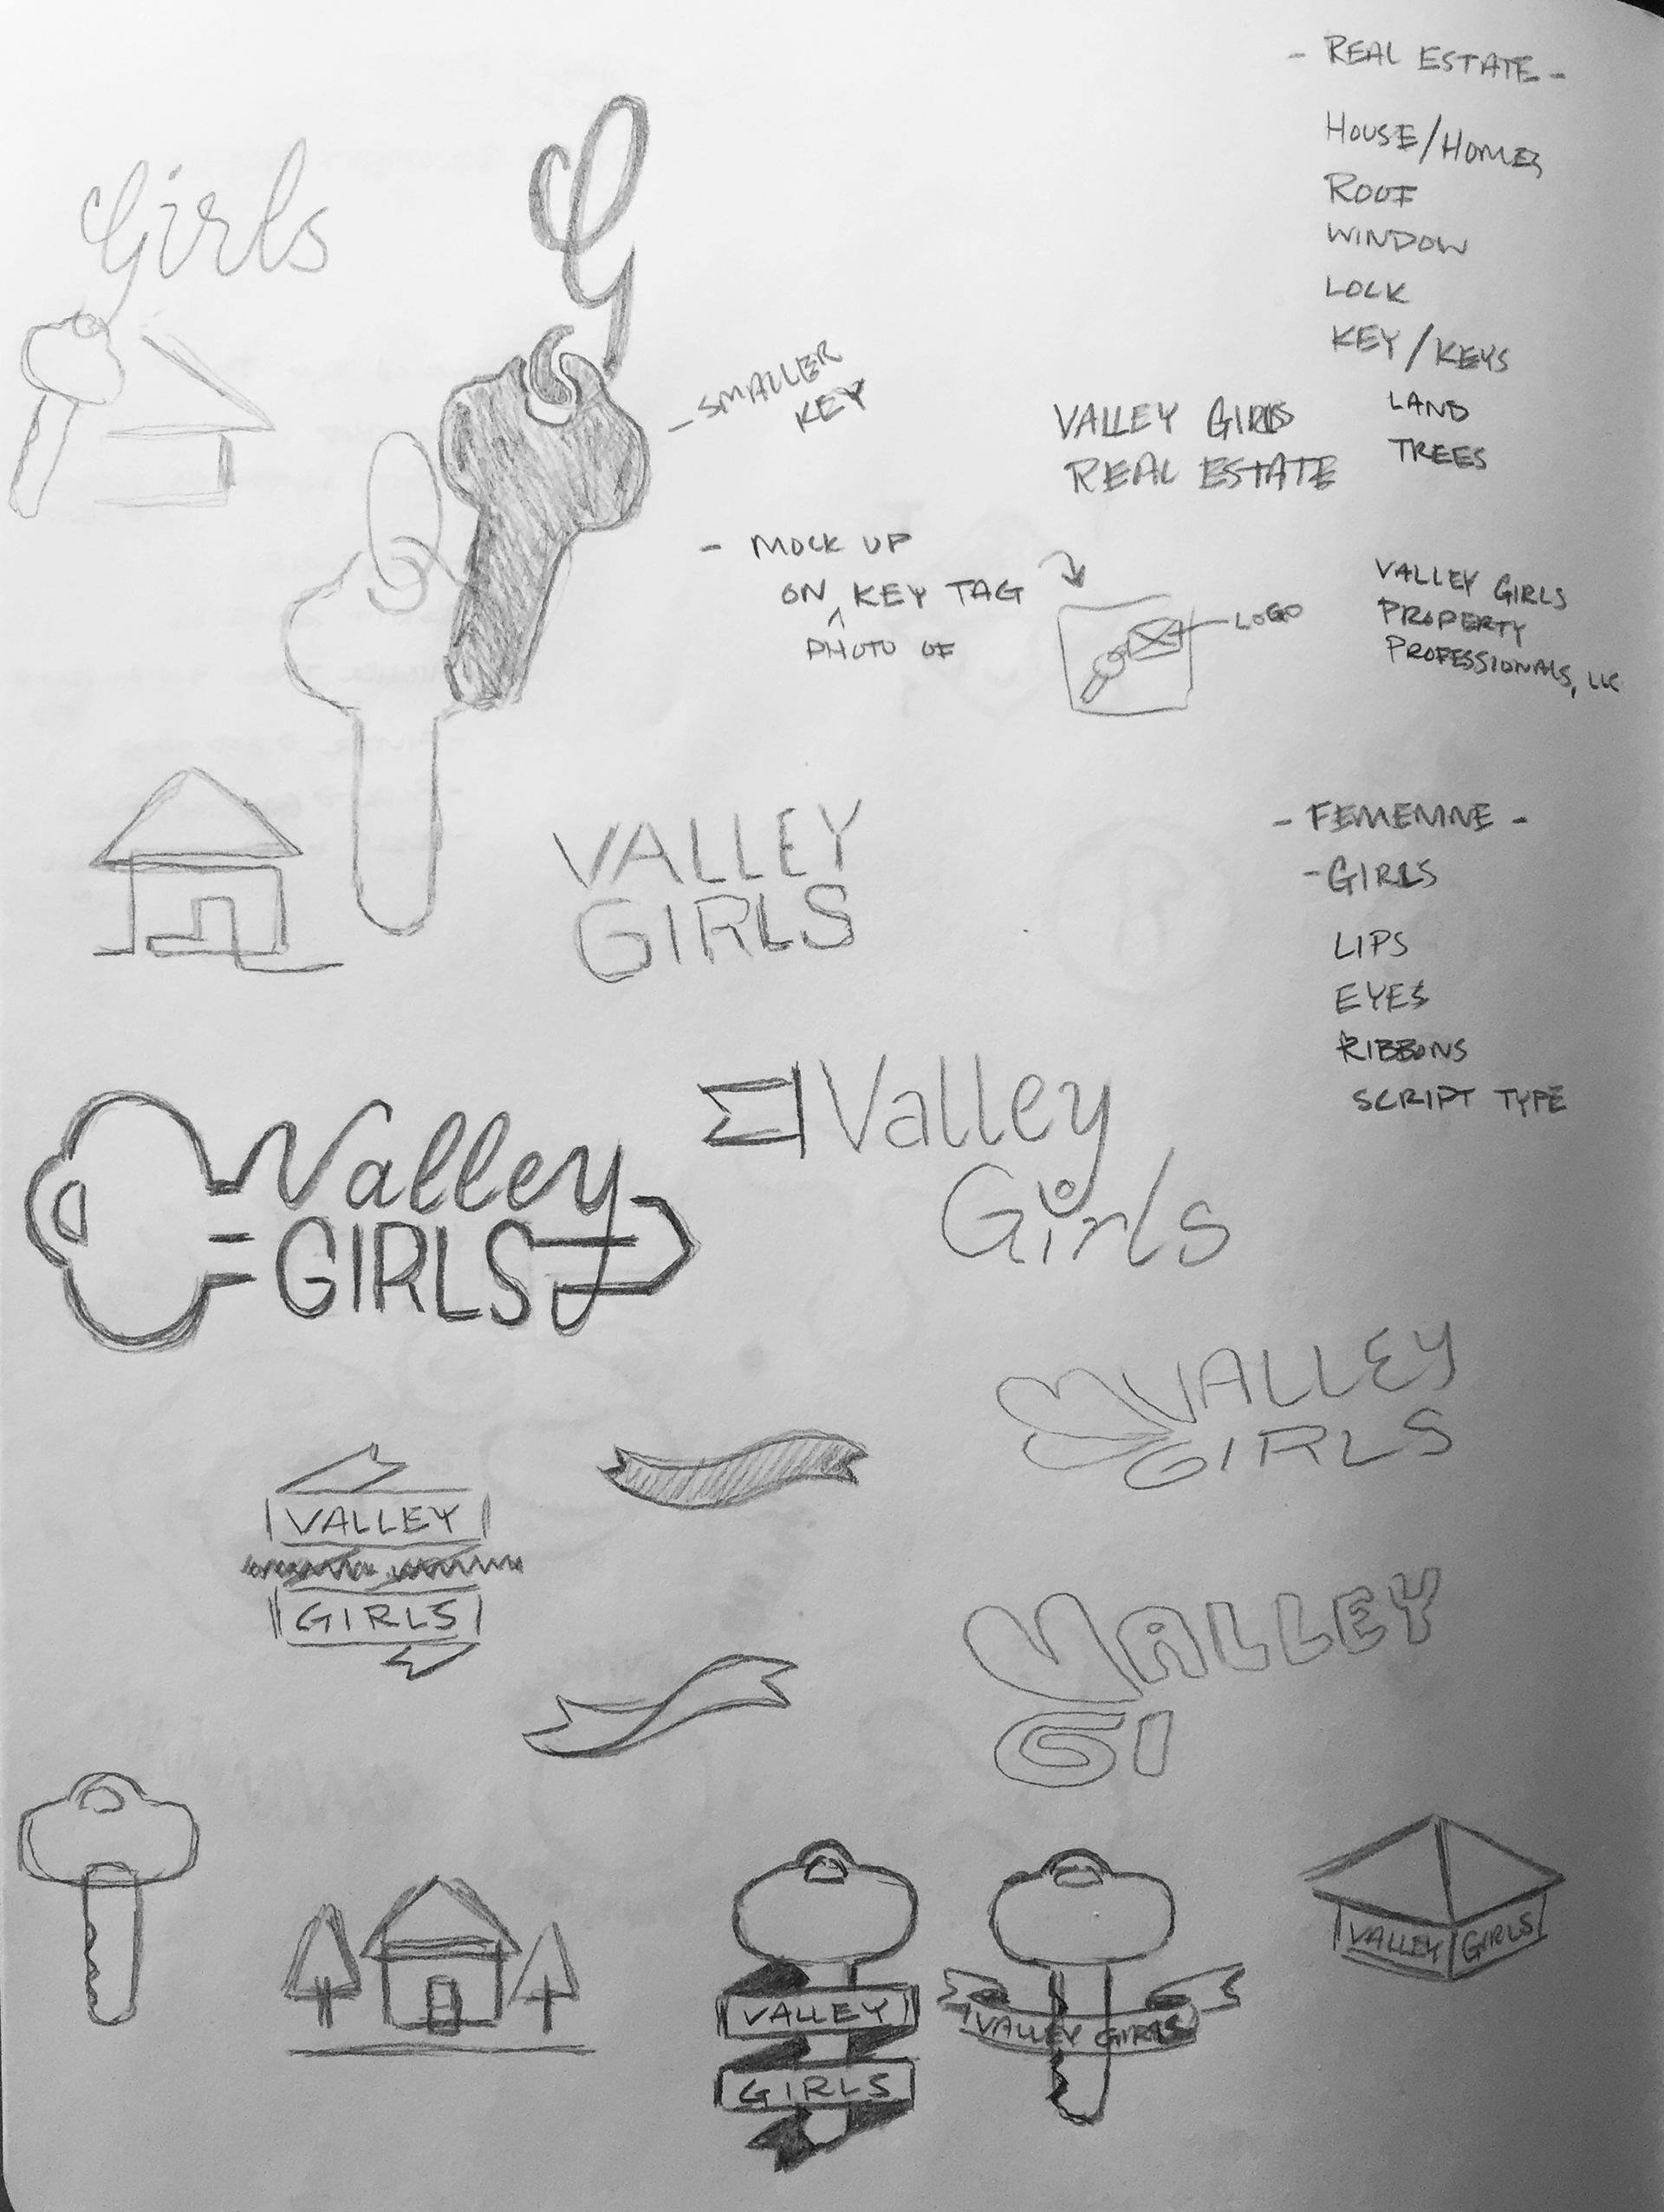 - REAL ESTATE -
HOUSE/HOMES
ROOF
WINDOW
LOCK
KEY/KEYS
LAND
TREES
Girls
G
- SMALLER
KEY
VALLEY GIRLS
REAL ESTATE
- MOCK UP
ON KEY TAG
PHOTO OF
LOGO
VALLEY GIRLS
PROPERTY
PROFESSIONALS, LLC
VALLEY
GIRLS
- FEMENINE -
- GIRLS
LIPS
EYES
RIBBONS
SCRIPT TYPE
Valley
GIRLS
Valley
Girls
VALLEY
GIRLS
VALLEY
GIRLS
VALLEY
GI
VALLEY
GIRLS
VALLEY GIRLS
VALLEY GIRLS